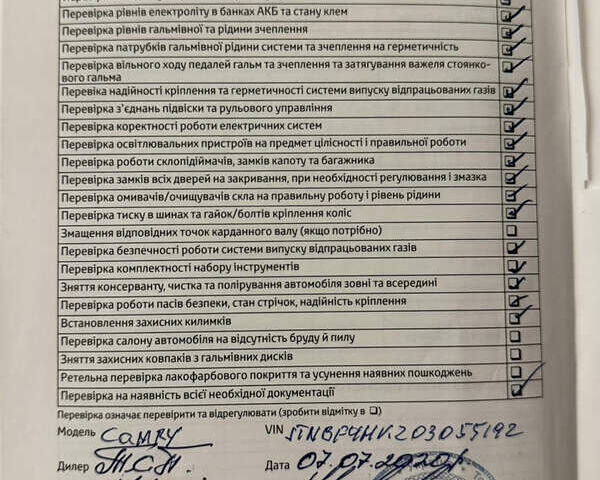 Перевірка рівнів електроліту в банках АКБ та стану клем
Перевірка рівнів гальмівної та рідини зчеплення
Перевірка патрубків гальмівної рідини системи та зчеплення на герметичність
Перевірка вільного ходу педалей гальм та зчеплення та затягування важеля стоянко-
вого гальма
Перевіка надійності кріплення та герметичності системи випуску відпрацьованих газів
Перевірка з'єднань підвіски та рульового управління
Перевірка коректності роботи електричних систем
Перевірка освітлювальних пристроїв на предмет цілісності і правильної роботи
Перевірка роботи склопідіймачів, замків капоту та багажника
Перевірка замків всіх дверей на закривання, при необхідності регулювання і змазка
Перевірка омивачів/очищувачів скла на правильну роботу і рівень рідини
Перевірка тиску в шинах та гайок/болтів кріплення коліс
Змащення відповідних точок карданного валу (якщо потрібно)
Перевірка безпечності роботи системи випуску відпрацьованих газів
Перевірка комплектності набору інструментів
Зняття консерванту, чистка та полірування автомобіля зовні та всередині
Перевірка роботи пасів безпеки, стан стрічок, надійність кріплення
Встановлення захисних килимків
Перевірка салону автомобіля на відсутність бруду й пилу
Зняття захисних ковпаків з гальмівних дисків
Ретельна перевірка лакофарбового покриття та усунення наявних пошкоджень
Перевірка на наявність всієї необхідної документації
Перевірка означає перевірити та відрегулювати (зробити відмітку в ❏)
Модель Camry VIN
Дилер Дата 07.07.2020